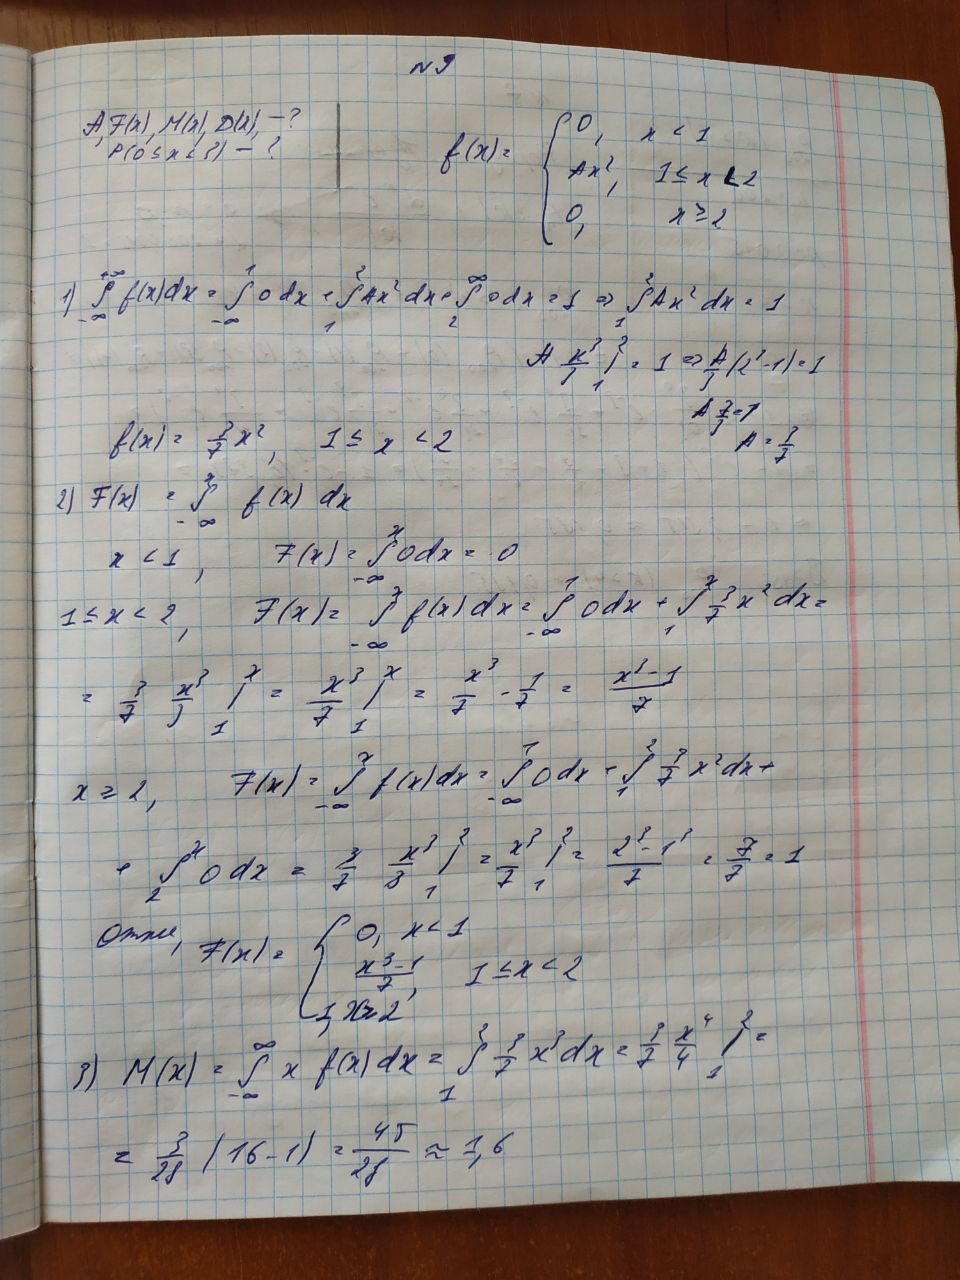 №9
A, F(x), M(x), D(x), – ?
P(0 ≤ x < 3) – ?
f(x) = { 0, x < 1
Ax², 1 ≤ x < 2
0, x ≥ 2
1) ∫_{-∞}^{+∞} f(x)dx = ∫_{-∞}^{1} 0 dx + ∫_{1}^{2} Ax² dx + ∫_{2}^{∞} 0 dx = 1 ⇒ ∫_{1}^{2} Ax² dx = 1
A x³/3 |_{1}^{2} = 1 ⇒ A/3 (2³ - 1) = 1
A 7/3 = 1
A = 3/7
f(x) = 3/7 x², 1 ≤ x < 2
2) F(x) = ∫_{-∞}^{x} f(x) dx
x < 1, F(x) = ∫_{-∞}^{x} 0 dx = 0
1 ≤ x < 2, F(x) = ∫_{-∞}^{x} f(x) dx = ∫_{-∞}^{1} 0 dx + ∫_{1}^{x} 3/7 x² dx =
= 3/7 x³/3 |_{1}^{x} = x³/7 |_{1}^{x} = x³/7 - 1/7 = (x³ - 1)/7
x ≥ 2, F(x) = ∫_{-∞}^{x} f(x)dx = ∫_{-∞}^{1} 0 dx + ∫_{1}^{2} 3/7 x² dx +
+ ∫_{2}^{x} 0 dx = 3/7 x³/3 |_{1}^{2} = x³/7 |_{1}^{2} = (2³ - 1³)/7 = 7/7 = 1
Отже, F(x) = { 0, x < 1
(x³ - 1)/7, 1 ≤ x < 2
1, x ≥ 2
3) M(x) = ∫_{-∞}^{∞} x f(x) dx = ∫_{1}^{2} 3/7 x³ dx = 3/7 x⁴/4 |_{1}^{2} =
= 3/28 (16 - 1) = 45/28 ≈ 1,6